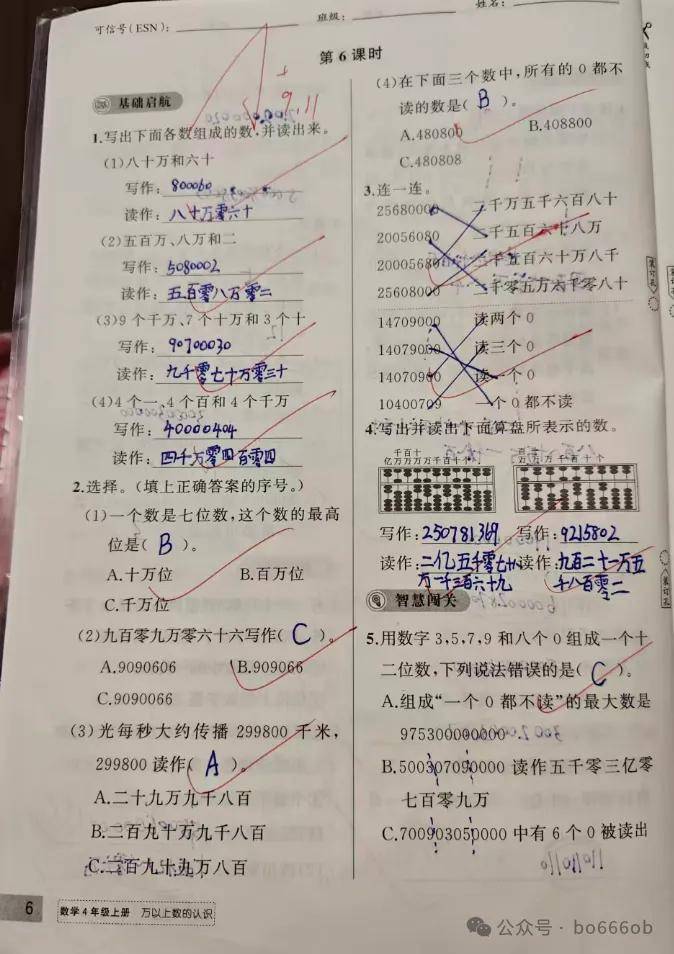 可信号(ESN):
班级:
姓名:
第6课时
9,11
基础启航
1.写出下面各数组成的数,并读出来。
(1)八十万和六十
写作: 800060
读作: 八十万零六十
(2)五百万、八万和二
写作: 5080002
读作: 五百零八万零二
(3)9个千万、7个十万和3个十
写作: 90700030
读作: 九千零七十万零三十
(4)4个一、4个百和4个千万
写作: 40000404
读作: 四千万零四百零四
2.选择。(填上正确答案的序号。)
(1)一个数是七位数,这个数的最高
位是( B )。
A.十万位 B.百万位
C.千万位
(2)九百零九万零六十六写作( C )。
A.9090606 B.909066
C.9090066
(3)光每秒大约传播299800千米,
299800读作( A )。
A.二十九万九千八百
B.二百九十万九千八百
C.二百九十九万八百
(4)在下面三个数中,所有的0都不
读的数是( B )。
A.480800 B.408800
C.480808
3.连一连。
25680000 二千万五千六百八十
20056080 二千五百六十八万
20005680 二千五百六十万八千
25608000 二千零五万六千零八十
14709000 读两个0
14079000 读三个0
14070900 读一个0
10400709 一个0都不读
4.写出并读出下面算盘所表示的数。
千百十
亿万万万万千百十个
百十
万万万千百十个
写作: 250781369 写作: 9215802
读作: 二亿五千零七十八 读作: 九百二十一万五
万一千三百六十九 千八百零二
智慧闯关
5.用数字3,5,7,9和八个0组成一个十
二位数,下列说法错误的是( C )。
A.组成“一个0都不读”的最大数是
975300000000
B.500307090000读作五千零三亿零
七百零九万
C.700903050000中有6个0被读出
6
数学4年级上册 万以上数的认识
公众号·bo666ob